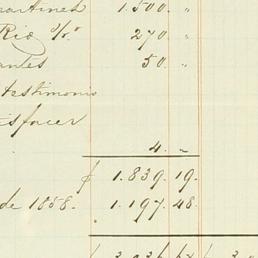 martines 1.500. "
Rio 0/0 270 "
antes 50. "
testimonio
isfacer
4. "
$ 1.839. 19.
de 1858. 1.197. 48